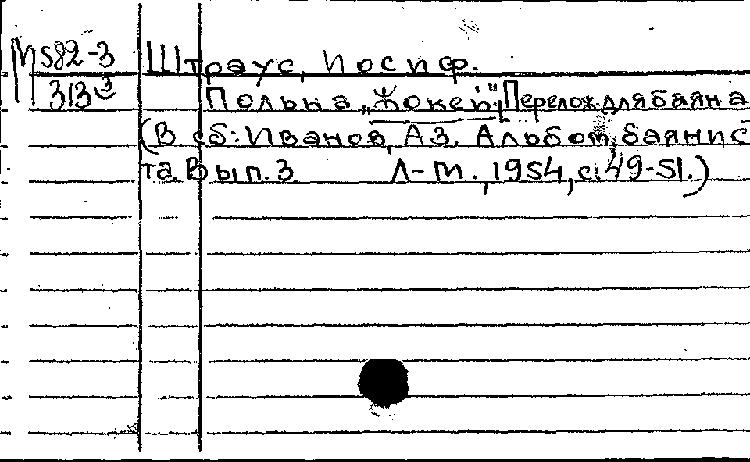 М582-3 Штраус, Иосиф.
313 3 Полька „Жокей“ Перелож. для баяна
(В сб: Иванов, А.З. Альбом баянис
та Вып. 3 Л-М., 1954, с. 49-51.)